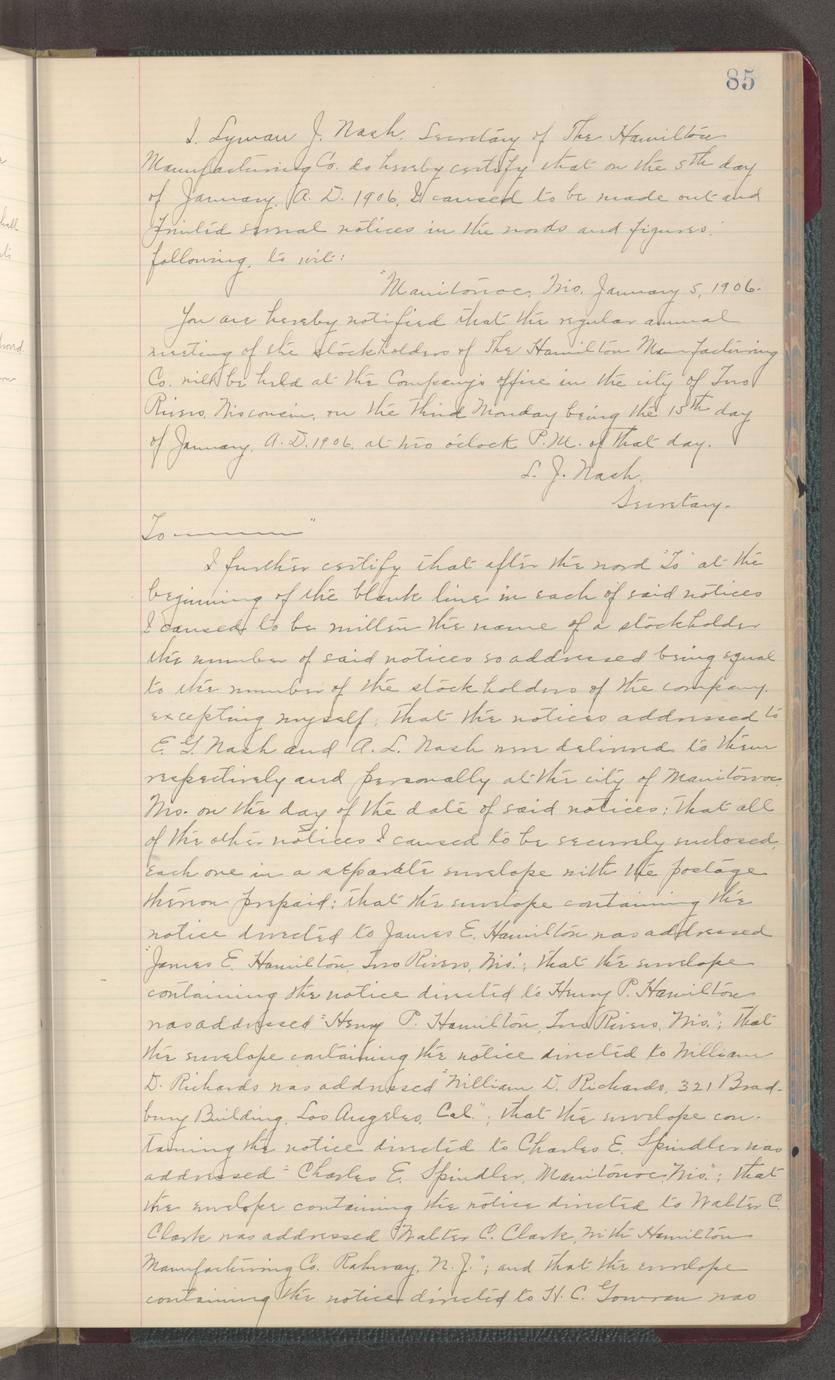 85
I, Lyman J. Nash, Secretary of The Hamilton
Manufacturing Co. do hereby certify that on the 5th day
of January, A. D. 1906, I caused to be made out and
several notices in the words and figures
following, to wit:
"Manitowoc, Wis. January 5, 1906.
You are hereby notified that the regular annual
meeting of the stockholders of The Hamilton Manufacturing
Co. will be held at the Company's office in the city of Two
Rivers, Wisconsin, on the third Monday being the 15th day
of January, A. D. 1906, at two o'clock P. M. of that day.
L. J. Nash,
Secretary.
To ———— "
I further certify that after the word "To" at the
beginning of the blank line in each of said notices
I caused to be written the name of a stockholder
the number of said notices so addressed being equal
to the number of the stockholders of the company,
excepting myself; that the notices addressed to
E. G. Nash and A. L. Nash were delivered to them
respectively and personally at the city of Manitowoc,
Wis. on the day of the date of said notices; that all
of the other notices I caused to be securely enclosed,
each one in a separate envelope with the postage
thereon prepaid; that the envelope containing the
notice directed to James E. Hamilton was addressed
"James E. Hamilton, Two Rivers, Wis."; that the envelope
containing the notice directed to Henry P. Hamilton
was addressed "Henry P. Hamilton, Two Rivers, Wis."; that
the envelope containing the notice directed to William
D. Richards was addressed "William D. Richards, 321 Brad-
bury Building, Los Angeles, Cal."; that the envelope con-
taining the notice directed to Charles E. Spindler was
addressed "Charles E. Spindler, Manitowoc, Wis."; that
the envelope containing the notice directed to Walter C.
Clark was addressed "Walter C. Clark, with Hamilton
Manufacturing Co. Rahway, N. J."; and that the envelope
containing the notice directed to H. C. Gowran was